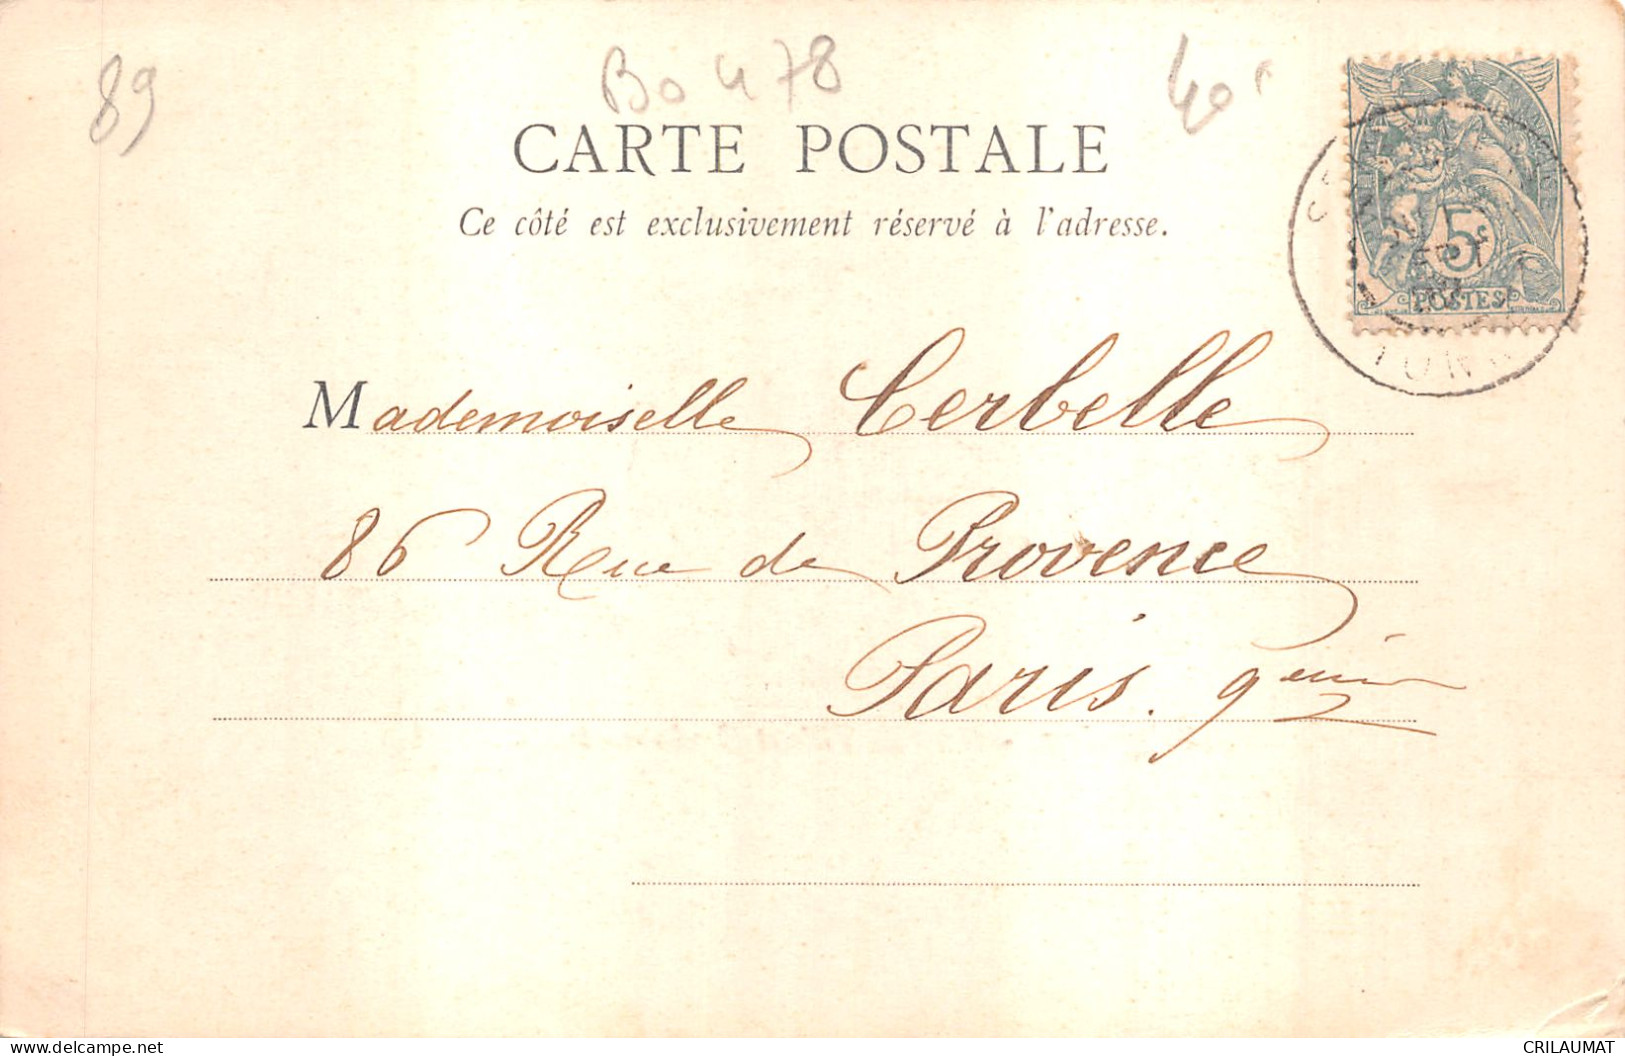 89
Bo 478
40f
CARTE POSTALE
Ce côté est exclusivement réservé à l'adresse.
5c
POSTES
Mademoiselle Cerbelle
86 Rue de Provence
Paris. 9ème
CRILAUMAT